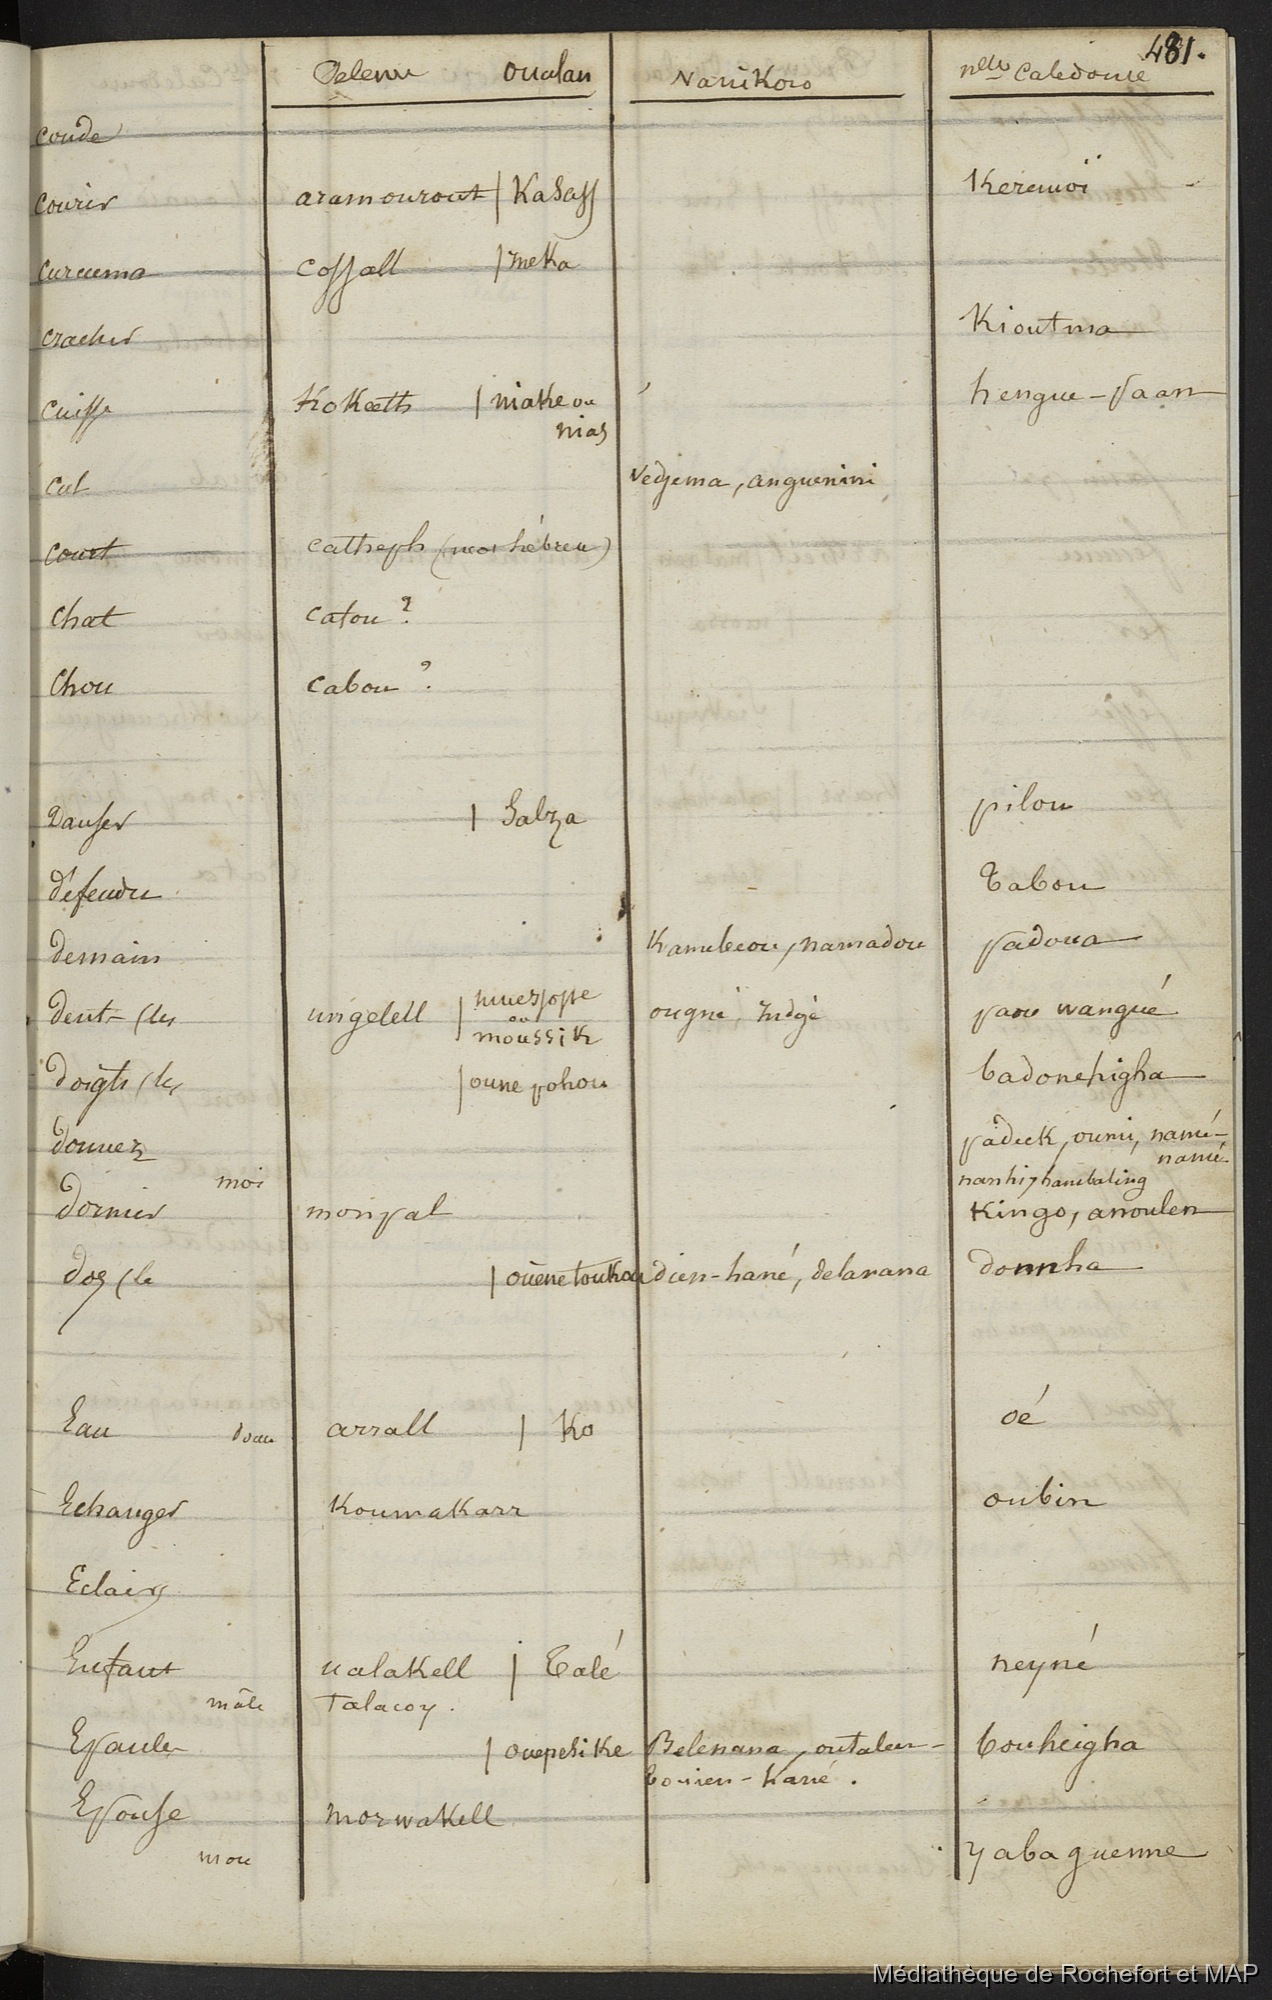 481.
Pelew oualan Vanikoro nelle Caledonie
coude
courir aramourout | Kasaff Keremoï
curcuma cossall | meka
cracher Kioutma
cuisse Kokœth | niake ou hengue-paan
nias
cul vedjema, anguenini
court catheph (mot hébreu)
chat catou ?
chou cabou ?
danser | Salza pilou
défendu tabou
demain Kamebeou, namadou padoua
dent (les ungelell | ougné, indgé paou wangué
ou
moussik
doigts (les | oune pohou badonehigha
donner padeek, oumi, namé-
namé
moi nanhi, hambaling
dormir monpal Kingo, anoulen
dos (le | ouène toukou dien-hané, delanana donnha
Eau douce arrall | Ko oé
Echanger Koumakarr oubin
Eclairs
Enfant nalakell | Talé neyné
mâle Talacoy.
Epaule | ouepesike Belenana, outalen- bouheigha
bouien-hané.
Epouse morwakell
mon yabaguenne
Médiathèque de Rochefort et MAP